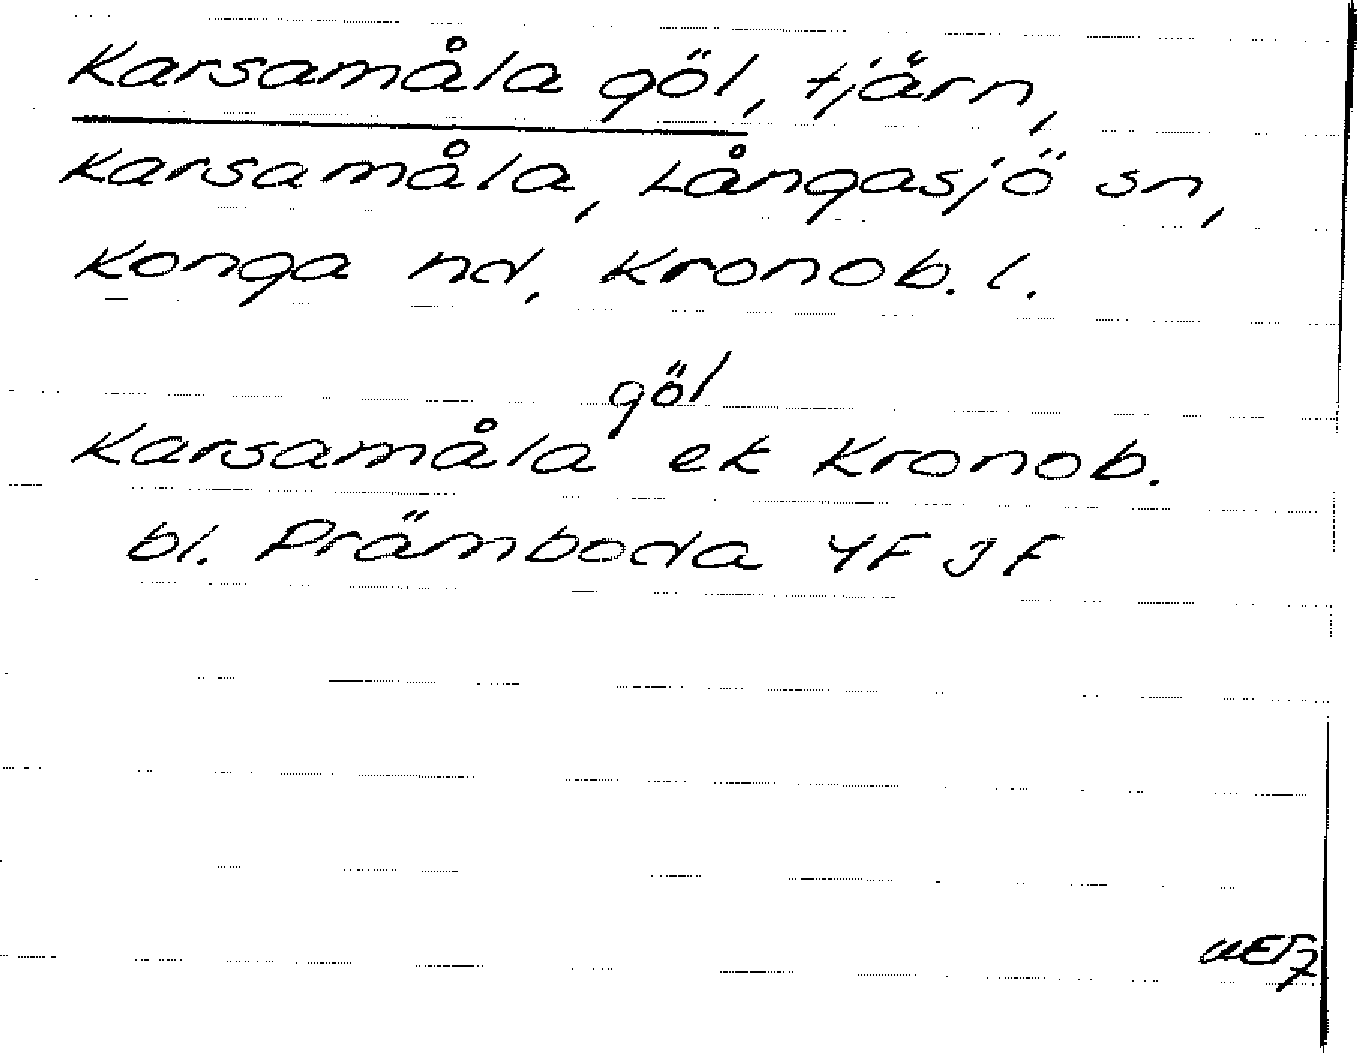 Karsamåla göl, tjärn,
Karsamåla, Långasjö sn,
Konga hd, Kronob. l.
Karsamåla göl ek Kronob.
bl. Främboda 4F JF